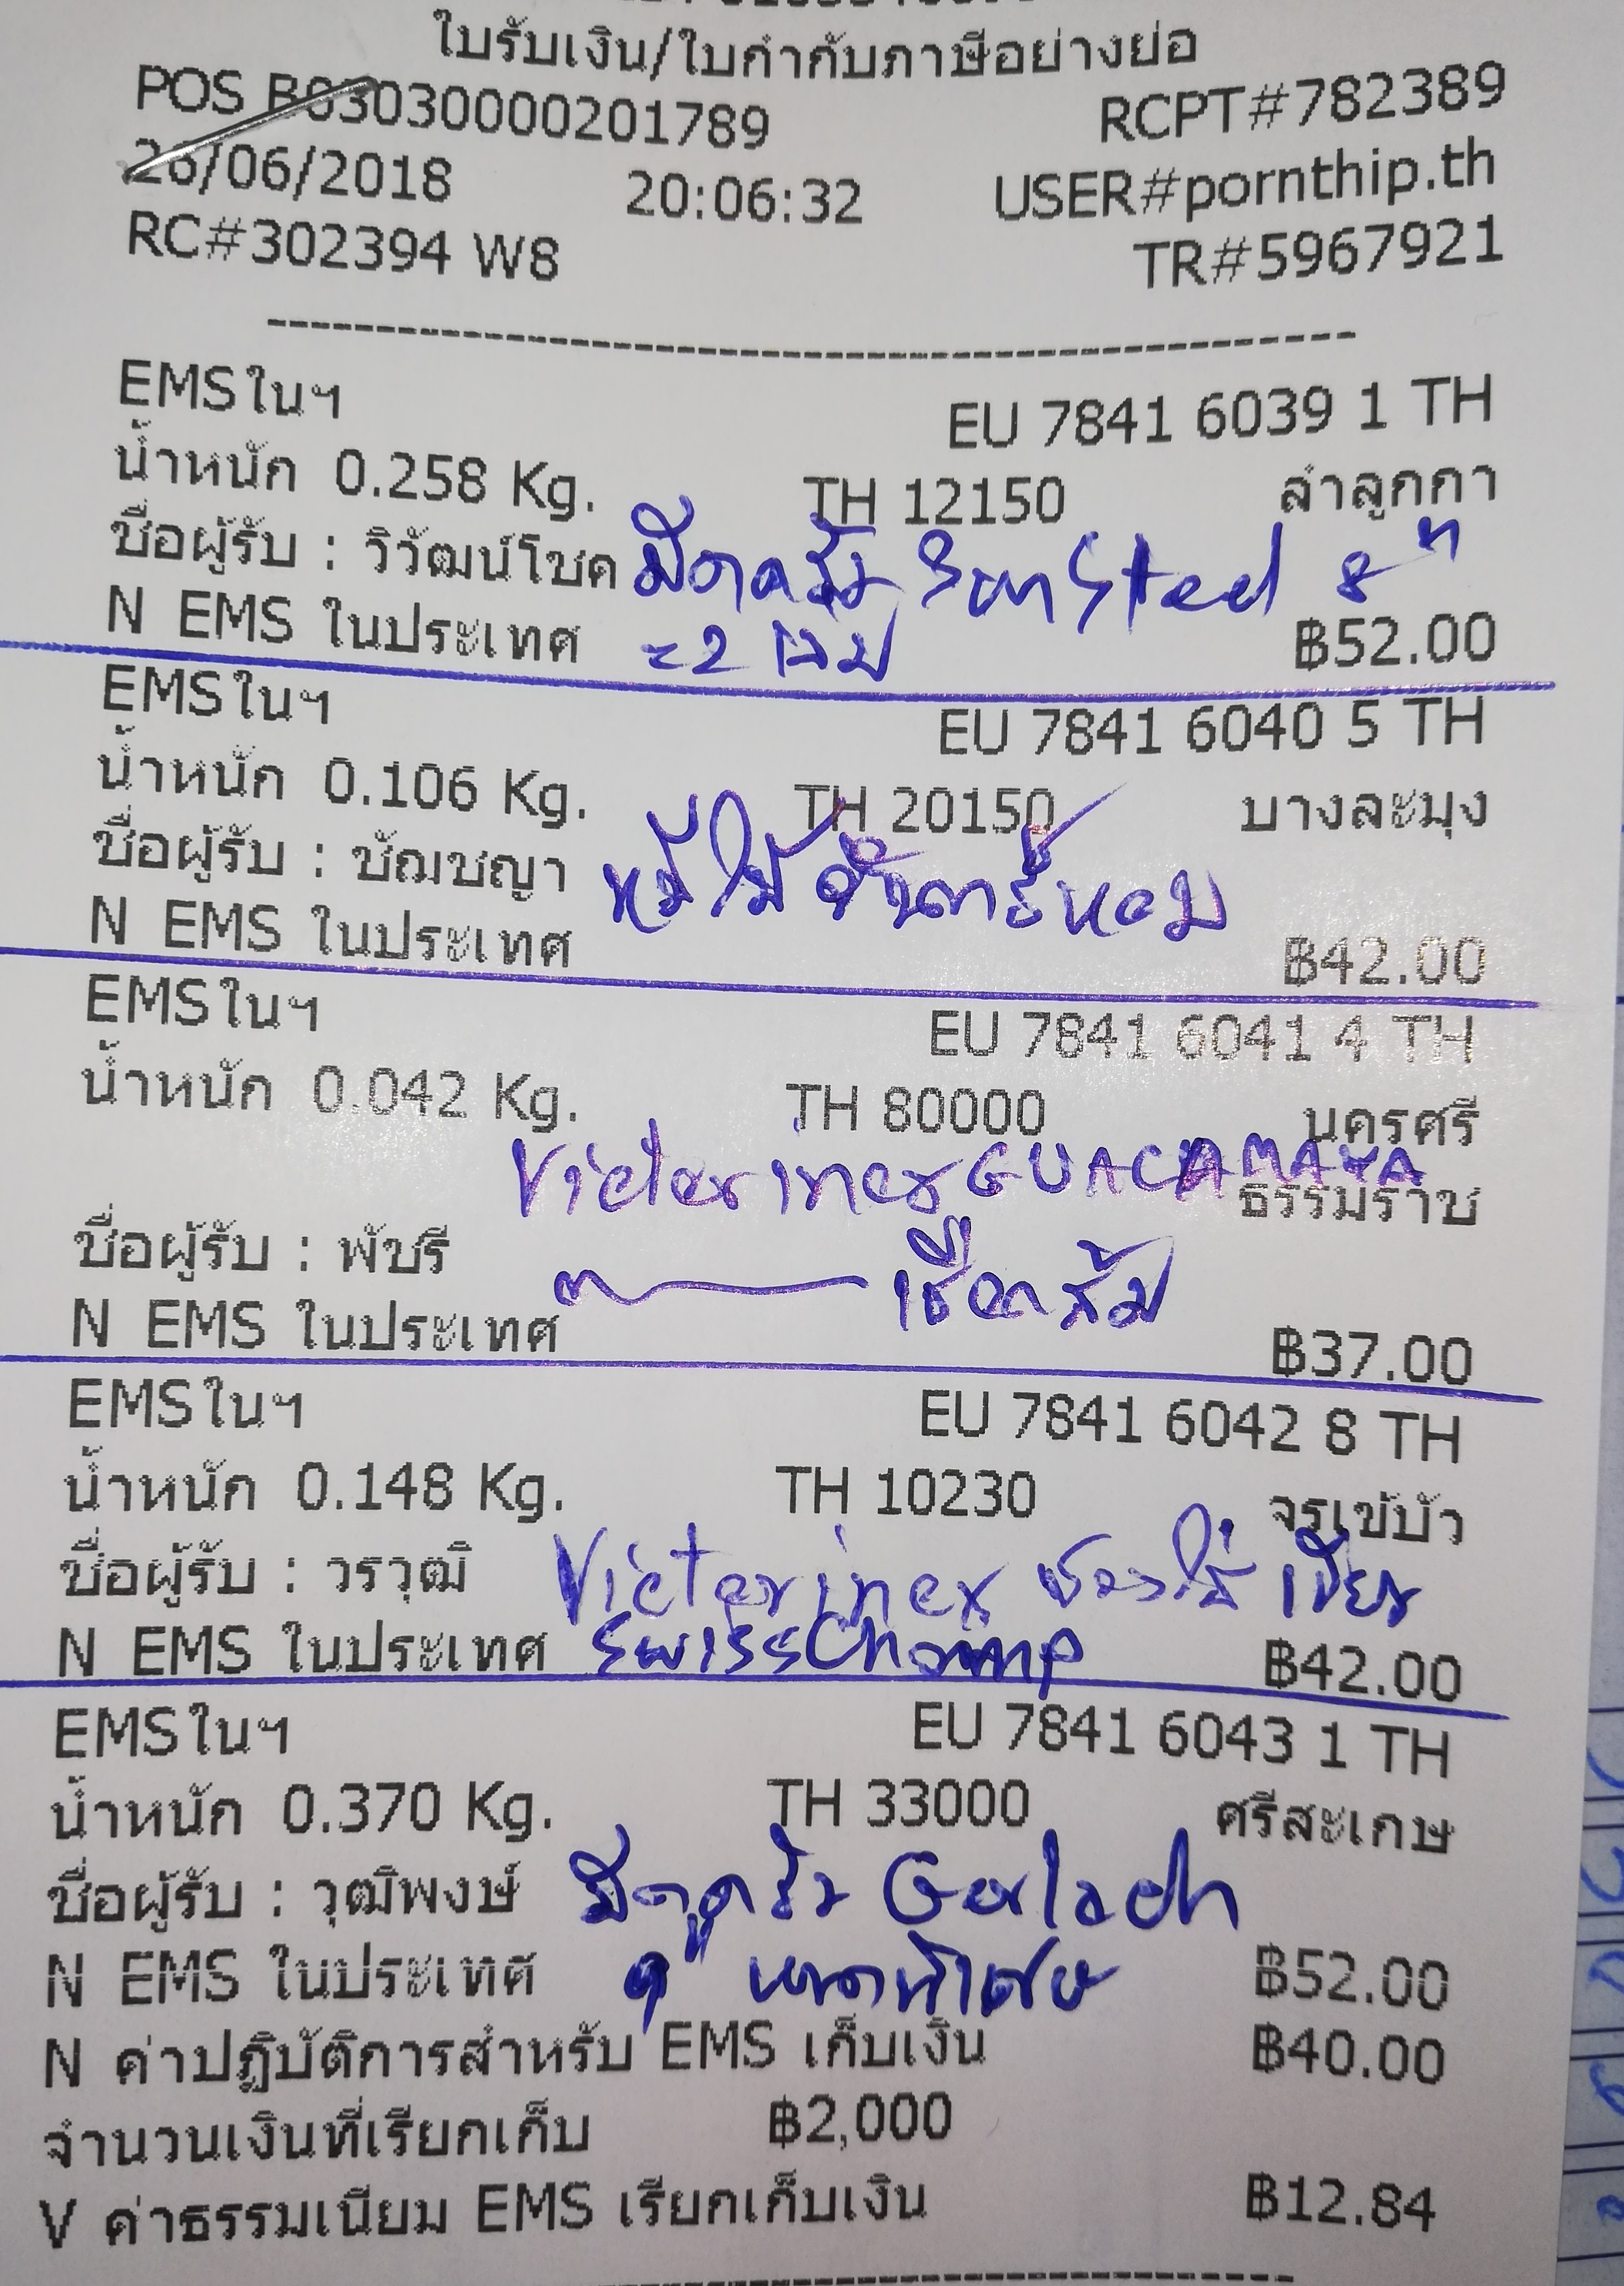 ใบรับเงิน/ใบกำกับภาษีอย่างย่อ
POS B03030000201789 RCPT#782389
26/06/2018 20:06:32 USER#pornthip.th
RC#302394 W8 TR#5967921
EMSในฯ EU 7841 6039 1 TH
น้ำหนัก 0.258 Kg. TH 12150 ลำลูกกา
ชื่อผู้รับ : วิวัฒน์โชค มีดครัว SunSteel 8"
N EMS ในประเทศ =2 เล่ม ฿52.00
EMSในฯ EU 7841 6040 5 TH
น้ำหนัก 0.106 Kg. TH 20150 บางละมุง
ชื่อผู้รับ : ชัญชญา จันทร์หอม
N EMS ในประเทศ ฿42.00
EMSในฯ EU 7841 6041 4 TH
น้ำหนัก 0.042 Kg. TH 80000 นครศรี
Victorinox GUACAMAYA ธรรมราช
ชื่อผู้รับ : พัชรี
N EMS ในประเทศ ฿37.00
EMSในฯ EU 7841 6042 8 TH
น้ำหนัก 0.148 Kg. TH 10230 จรเข้บัว
ชื่อผู้รับ : วรวุฒิ Victorinox ซองใส่
N EMS ในประเทศ SwissChamp ฿42.00
EMSในฯ EU 7841 6043 1 TH
น้ำหนัก 0.370 Kg. TH 33000 ศรีสะเกษ
ชื่อผู้รับ : วุฒิพงษ์ มีดครัว Gerlach
N EMS ในประเทศ 9" ฿52.00
N ค่าปฏิบัติการสำหรับ EMS เก็บเงิน ฿40.00
จำนวนเงินที่เรียกเก็บ ฿2,000
V ค่าธรรมเนียม EMS เรียกเก็บเงิน ฿12.84